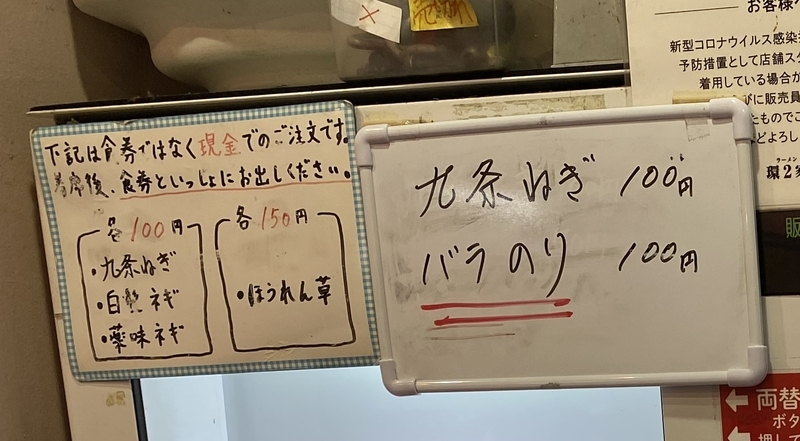 ×
下記は食券ではなく現金でのご注文です。
着席後、食券といっしょにお出しください。
各100円
・九条ねぎ
・白髪ネギ
・薬味ネギ
各150円
・ほうれん草
九条ねぎ 100円
バラのり 100円
お客様へ
新型コロナウイルス感染
予防措置として店舗スタ
着用している場合が
びに販売員
たものでご
どよろし
ラーメン
環2家
販
両替
ボタ
押して